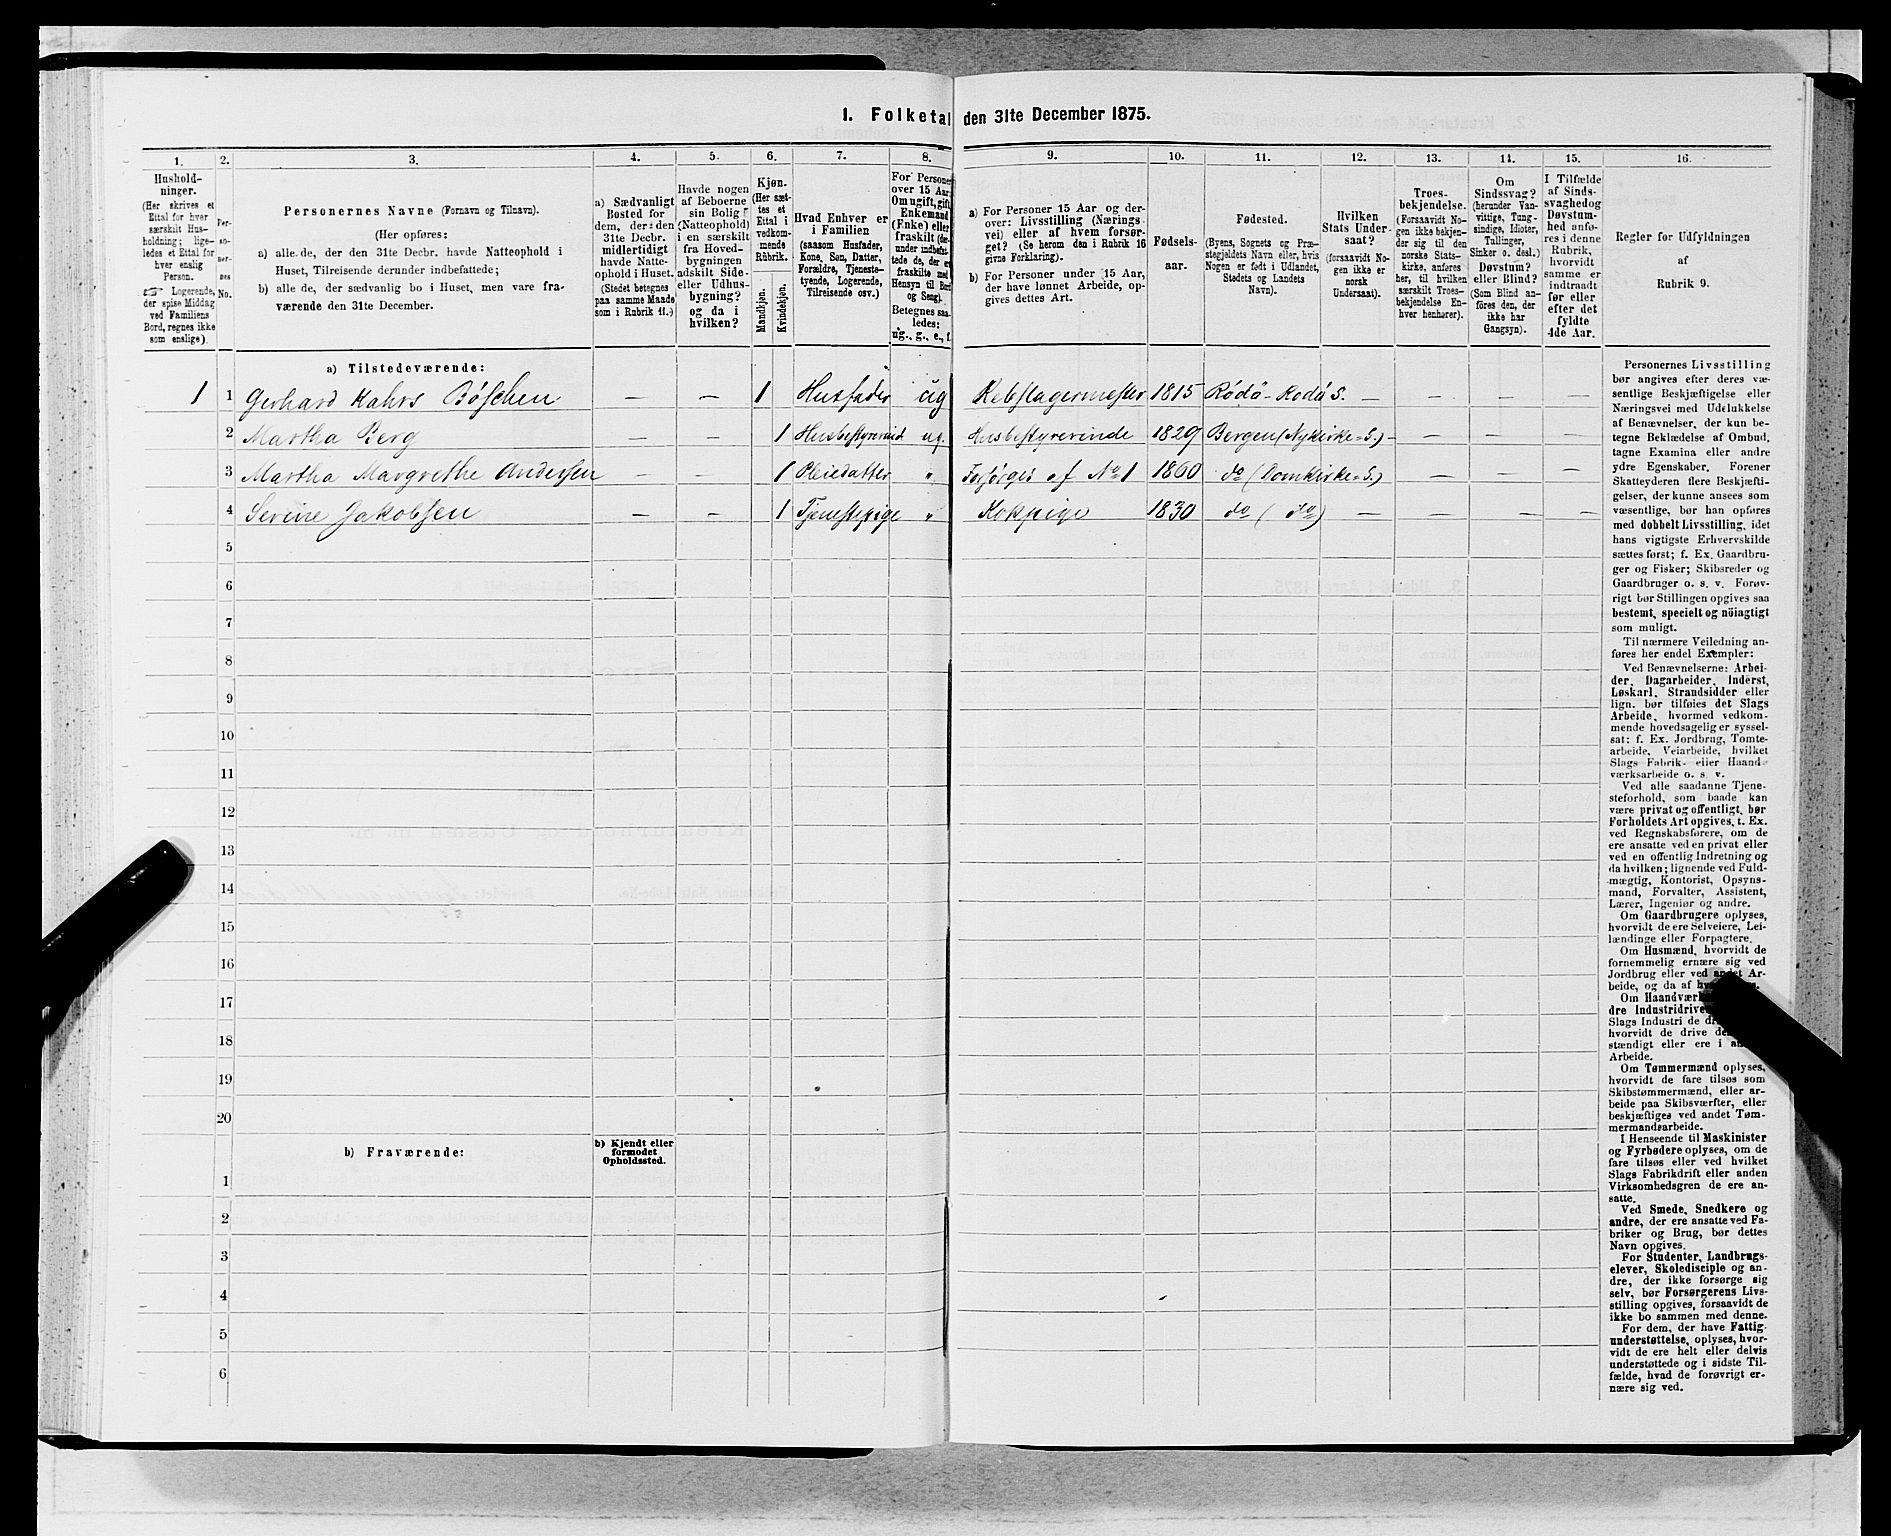 1. Folketal den 31te December 1875.
1. 2. 3. 4. 5. 6. 7. 8. 9. 10. 11. 12. 13. 14. 15. 16.
Hushold-
ninger.
(Her skrives et
Ettal for hver
særskilt Hus-
holdning; lige-
ledes et Ettal for
hver enslig
Person.
☞ Logerende,
der spise Middag
ved Familiens
Bord, regnes ikke
som enslige).
Per-
so-
ner-
nes
No.
Personernes Navne (Fornavn og Tilnavn).
(Her opføres:
a) alle de, der den 31te Decbr. havde Natteophold i
Huset, Tilreisende derunder indbefattede;
b) alle de, der sædvanlig bo i Huset, men vare fra-
værende den 31te December.
a) Sædvanligt
Bosted for
dem, der den
31te Decbr.
midlertidigt
havde Natte-
ophold i Huset.
(Stedet betegnes
paa samme Maade
som i Rubrik 11.)
Havde nogen
af Beboerne
sin Bolig
(Natteophold)
i en særskilt
fra Hoved-
bygningen
adskilt Side-
eller Udhus-
bygning?
og da i
hvilken?
Kjøn.
(Her sæt-
tes et
Ettal i
vedkom-
mende
Rubrik.
Mandkjøn.
Kvindekjøn.
Hvad Enhver er
i Familien
(saasom Husfader,
Kone, Søn, Datter,
Forældre, Tjeneste-
tyende, Logerende,
Tilreisende osv.)
For Personer
over 15 Aar:
Om ugift, gift,
Enkemand
(Enke) eller
fraskilt (der-
under indbefat-
tede de, der er
fraskilte med
Hensyn til Bord
og Seng).
Betegnes saa-
ledes:
ug., g., e., f.
a) For Personer 15 Aar og der-
over: Livsstilling (Nærings-
vei) eller af hvem forsør-
get? (Se herom den i Rubrik 16
givne Forklaring).
b) For Personer under 15 Aar,
der have lønnet Arbeide, op-
gives dettes Art.
Fødsels-
aar.
Fødested.
(Byens, Sognets og Præ-
stegjeldets Navn eller, hvis
Nogen er født i Udlandet,
Stedets og Landets
Navn).
Hvilken
Stats Under-
saat?
(forsaavidt No-
gen ikke er
norsk
Undersaat).
Troes-
bekjendelse.
(Forsaavidt No-
gen ikke bekjen-
der sig til den
norske Stats-
kirke, anføres
her, til hvilken
særskilt Troes-
bekjendelse En-
hver henhører).
Om
Sindssvag?
(herunder Van-
vittige, Tung-
sindige, Idioter,
Tullinger,
Sinker o. desl.)
Døvstum?
eller Blind?
(Som Blind an-
føres den, der
ikke har
Gangsyn).
I Tilfælde
af Sinds-
svaghed og
Døvstum-
hed anfø-
res i denne
Rubrik,
hvorvidt
samme er
indtraadt
før eller
efter det
fyldte
4de Aar.
Regler for Udfyldningen
af
Rubrik 9.
a) Tilstedeværende:
1 1 Gerhard Kahrs Böschen — — 1 Husfader ug Rebslagermester 1815 Rödö-Rodö S. — — — —
2 Martha Berg — — 1 Husbestyrerind ug. Husbestyrerinde 1829 Bergen (Nykirke=S.) — — — —
3 Martha Margrethe Andersen — — 1 Pleiedatter " Forsörges af No 1 1860 do (Domkirke=S.) — — —
4 Serine Jakobsen — — 1 Tjenestepige " Kokpige 1830 do ( do ) — — — —
5
6
7
8
9
10
11
12
13
14
15
16
17
18
19
20
b) Fraværende:
b) Kjendt eller
formodet
Opholdssted.
1
2
3
4
5
6
Personernes Livsstilling
bør angives efter deres væ-
sentlige Beskjæftigelse eller
Næringsvei med Udelukkelse
af Benævnelser, der kun be-
tegne Beklædelse af Ombud,
tagne Examina eller andre
ydre Egenskaber. Forener
Skatteyderen flere Beskjæfti-
gelser, der kunne ansees som
væsentlige, bør han opføres
med dobbelt Livsstilling, idet
hans vigtigste Erhvervskilde
sættes først; f. Ex. Gaardbru-
ger og Fisker; Skibsreder og
Gaardbruger o. s. v. Forøv-
rigt bør Stillingen opgives saa
bestemt, specielt og nöiagtigt
som muligt.
Til nærmere Veiledning an-
føres her endel Exempler:
Ved Benævnelserne: Arbei-
der, Dagarbeider, Inderst,
Løskarl, Strandsidder eller
lign. bør tilføies det Slags
Arbeide, hvormed vedkom-
mende hovedsagelig er syssel-
sat; f. Ex. Jordbrug, Tomte-
arbeide, Veiarbeide, hvilket
Slags Fabrik- eller Haand-
værksarbeide o. s. v.
Ved alle saadanne Tjene-
steforhold, som baade kan
være privat og offentligt, bør
Forholdets Art opgives, t. Ex.
ved Regnskabsførere, om de
ere ansatte ved en privat eller
ved en offentlig Indretning og
da hvilken; lignende ved Fuld-
mægtig, Kontorist, Opsyns-
mand, Forvalter, Assistent,
Lærer, Ingeniør og andre.
Om Gaardbrugere oplyses,
hvorvidt de ere Selveiere, Lei-
lændinge eller Forpagtere.
Om Husmænd, hvorvidt de
fornemmelig ernære sig ved
Jordbrug eller ved andet Ar-
beide, og da af
Om Haandværk
dre Industridriv
Slags Industri de
hvorvidt de drive
stændigt eller ere i
Arbeide.
Om Tømmermænd oplyses,
hvorvidt de fare tilsøs som
Skibstømmermænd, eller ar-
beide paa Skibsværfter, eller
beskjæftiges ved andet Tøm-
mermandsarbeide.
I Henseende til Maskinister
og Fyrbødere oplyses, om de
fare tilsøs eller ved hvilket
Slags Fabrikdrift eller anden
Virksomhedsgren de ere an-
satte.
Ved Smede, Snedkere og
andre, der ere ansatte ved Fa-
briker og Brug, bør dettes
Navn opgives.
For Studenter, Landbrugs-
elever, Skoledisciple og an-
dre, der ikke forsørge sig
selv, bør Forsørgerens Livs-
stilling opgives, forsaavidt de
ikke bo sammen med denne.
For dem, der have Fattig-
understøttelse, oplyses, hvor-
vidt de ere helt eller delvis
understøttede og i sidste Til-
fælde, hvad de forøvrigt er-
nære sig ved.